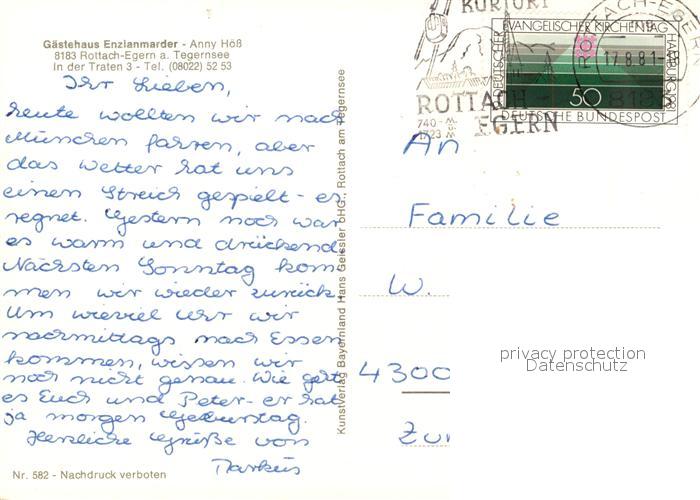 Gästehaus Enzianmarder - Anny Höß
8183 Rottach-Egern a. Tegernsee
In der Traten 3 - Tel. (08022) 52 53
Ihr Lieben,
heute wollten wir nach
München fahren, aber
das Wetter hat uns
einen Streich gespielt - es
regnet. Gestern noch war
es warm und drückend.
Nächsten Sonntag kom-
men wir wieder zurück.
Um wieviel Uhr wir
nachmittags nach Essen
kommen, wissen wir
noch nicht genau. Wie geht
es Euch und Peter - er hat
ja morgen Geburtstag.
Herzliche Grüße von
Markus
Nr. 582 - Nachdruck verboten
Kunstverlag Bayernland Hans Geissler oHG., Rottach am Tegernsee
KURORT
ROTTACH-
EGERN
740 - M
1723 M
ROTTACH-EGERN
17.8.81
818
DEUTSCHER EVANGELISCHER KIRCHENTAG HAMBURG 1981
50
DEUTSCHE BUNDESPOST
An
Familie
W.
4300
privacy protection
Datenschutz